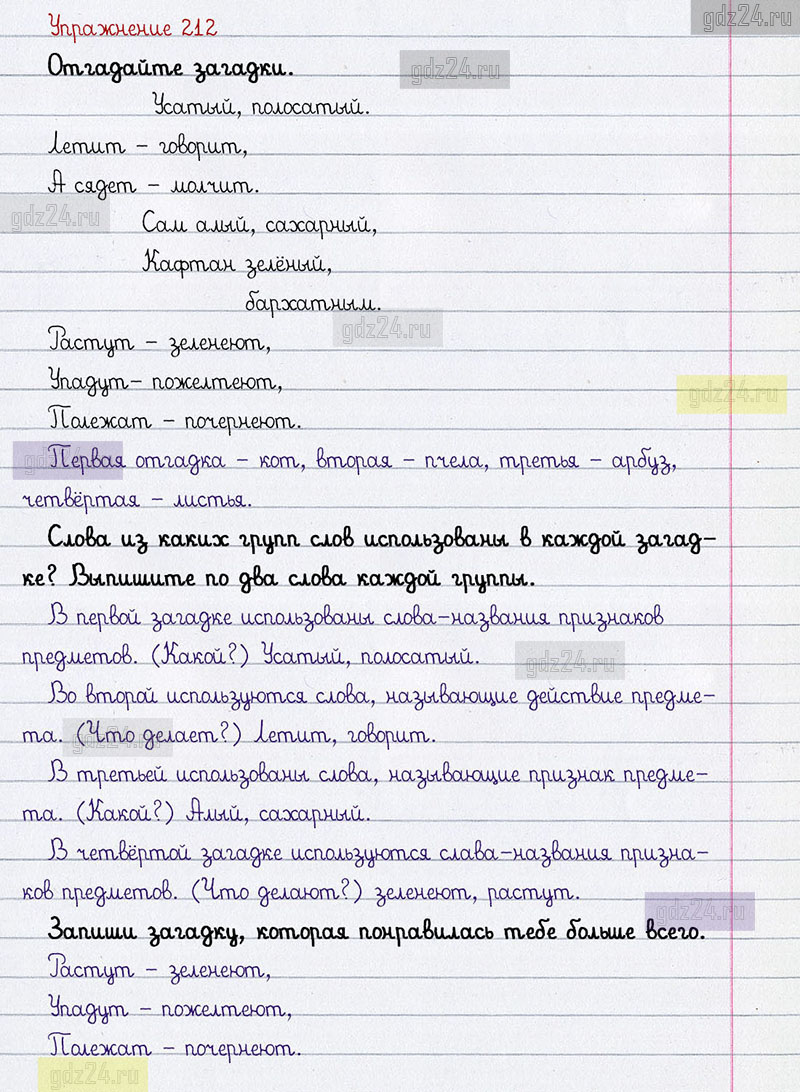 gdz24.ru
Упражнение 212
Отгадайте загадки.
gdz24.ru
Усатый, полосатый.
Летит – говорит,
А сядет – молчит.
gdz24.ru
Сам алый, сахарный,
Кафтан зелёный,
бархатным.
gdz24.ru
Растут – зеленеют,
Упадут– пожелтеют,
gdz24.ru
Полежат – почернеют.
gdz24.ru
Первая отгадка – кот, вторая – пчела, третья – арбуз,
четвёртая – листья.
Слова из каких групп слов использованы в каждой загад–
ке? Выпишите по два слова каждой группы.
В первой загадке использованы слова–названия признаков
предметов. (Какой?) Усатый, полосатый.
gdz24.ru
Во второй используются слова, называющие действие предме–
та. (Что делает?) Летит, говорит.
gdz24.ru
В третьей использованы слова, называющие признак предме–
та. (Какой?) Алый, сахарный.
В четвёртой загадке используются слава–названия призна–
ков предметов. (Что делают?) зеленеют, растут.
gdz24.ru
Запиши загадку, которая понравилась тебе больше всего.
Растут – зеленеют,
Упадут – пожелтеют,
Полежат – почернеют.
gdz24.ru